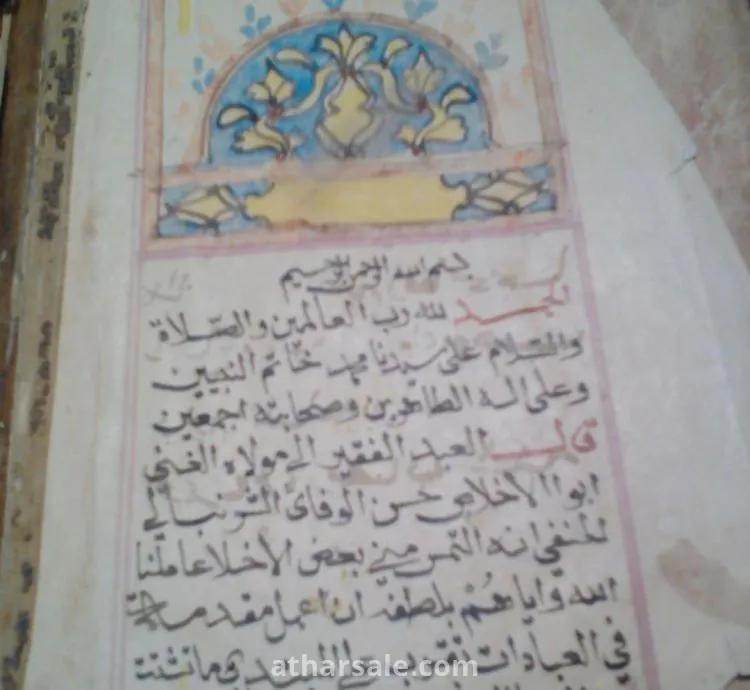 بسم الله الرحمن الرحيم
الحمد لله رب العالمين والصلاة
والسلام على سيدنا محمد خاتم النبيين
وعلى اله الطاهرين وصحابته اجمعين
قال العبد الفقير الى مولاه الغني
ابوا الاخلاص حسن الوفائ الشرنبالي
الحنفي انه التمس مني بعض الأخلا عاملنا
الله واياهم بلطفه ان اعمل مقدمة
في العبادات تقرب على المبتدي ما تشتت
atharsale.com